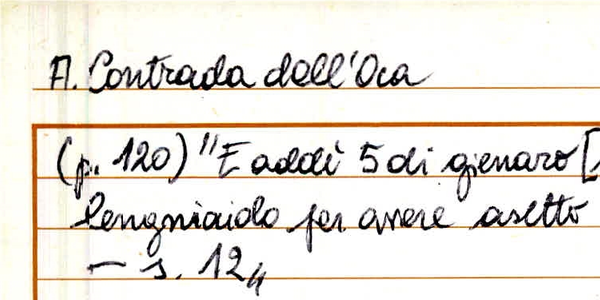 A. Contrada dell'Oca
(p. 120) "E addì 5 di gienaro [
lengniaiolo per avere asetto
— s. 12